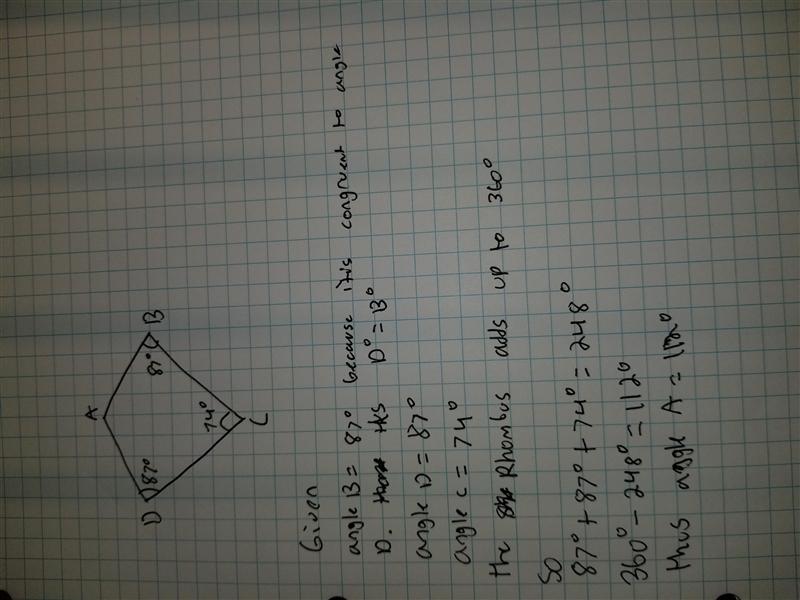 A
D 87° 87° B
74°
C
Given
angle B = 87° because it is congruent to angle
D. D° = B°
angle D = 87°
angle C = 74°
the Rhombus adds up to 360°
So
87° + 87° + 74° = 248°
360° - 248° = 112°
thus angle A = 112°